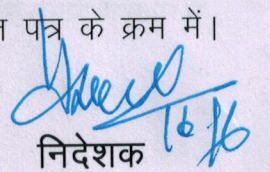 पत्र के क्रम में।
16/6
निदेशक